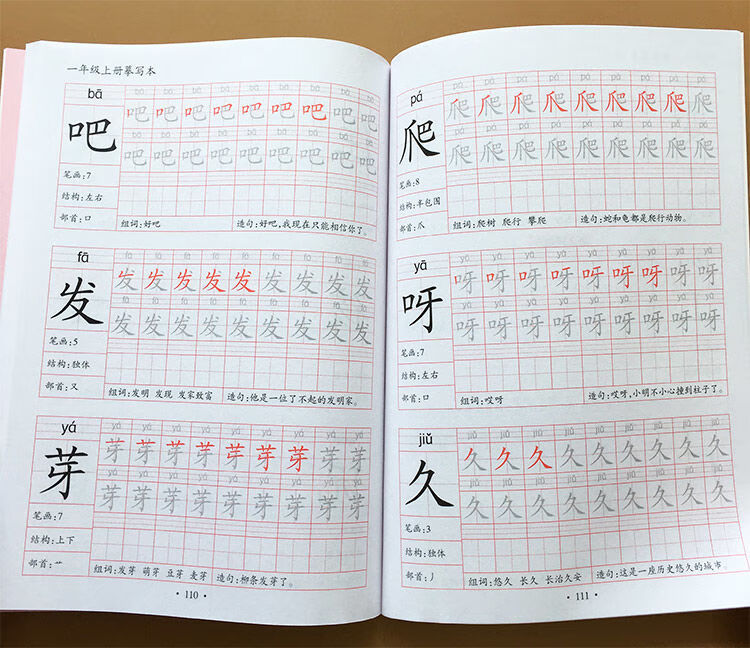 一年级上册摹写本
bā
bā bā bā bā bā bā bā bā bā
吧 吧吧吧吧吧吧吧吧吧
bā bā bā bā bā bā bā bā bā
吧吧吧吧吧吧吧吧吧
笔画:7
结构:左右
部首:口 组词:好吧 造句:好吧,我现在只能相信你了。
fā
fā fā fā fā fā fā fā fā fā
发 发发发发发发发发发
fā fā fā fā fā fā fā fā fā
发发发发发发发发发
笔画:5
结构:独体
部首:又 组词:发明 发现 发家致富 造句:他是一位了不起的发明家。
yá
yá yá yá yá yá yá yá yá yá
芽 芽芽芽芽芽芽芽芽芽
yá yá yá yá yá yá yá yá yá
芽芽芽芽芽芽芽芽芽
笔画:7
结构:上下
部首:艹 组词:发芽 萌芽 豆芽 麦芽 造句:柳条发芽了。
·110·
pá
pá pá pá pá pá pá pá pá pá
爬 爬爬爬爬爬爬爬爬爬
pá pá pá pá pá pá pá pá pá
爬爬爬爬爬爬爬爬爬
笔画:8
结构:半包围
部首:爪 组词:爬树 爬行 攀爬 造句:蛇和龟都是爬行动物。
yā
yā yā yā yā yā yā yā yā yā
呀 呀呀呀呀呀呀呀呀呀
yā yā yā yā yā yā yā yā yā
呀呀呀呀呀呀呀呀呀
笔画:7
结构:左右
部首:口 组词:哎呀 造句:哎呀,小明不小心撞到柱子了。
jiǔ
jiǔ jiǔ jiǔ jiǔ jiǔ jiǔ jiǔ jiǔ jiǔ
久 久久久久久久久久久
jiǔ jiǔ jiǔ jiǔ jiǔ jiǔ jiǔ jiǔ jiǔ
久久久久久久久久久
笔画:3
结构:独体
部首:丿 组词:悠久 长久 长治久安 造句:这是一座历史悠久的城市。
·111·